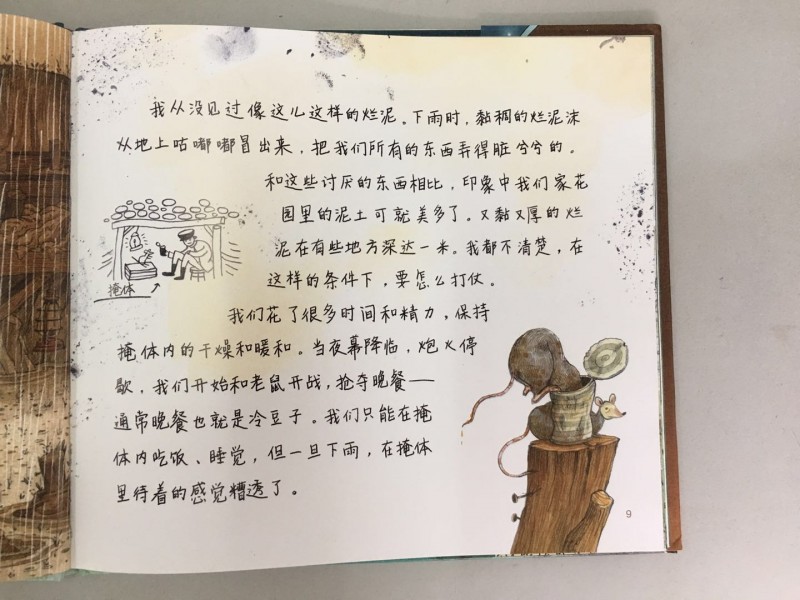 我从没见过像这儿这样的烂泥。下雨时，黏稠的烂泥沫
从地上咕嘟嘟冒出来，把我们所有的东西弄得脏兮兮的。
和这些讨厌的东西相比，印象中我们家花
园里的泥土可就美多了。又黏又厚的烂
泥在有些地方深达一米。我都不清楚，在
这样的条件下，要怎么打仗。
掩体
我们花了很多时间和精力，保持
掩体内的干燥和暖和。当夜幕降临，炮火停
歇，我们开始和老鼠开战，抢夺晚餐——
通常晚餐也就是冷豆子。我们只能在掩
体内吃饭、睡觉，但一旦下雨，在掩体
里待着的感觉糟透了。
9